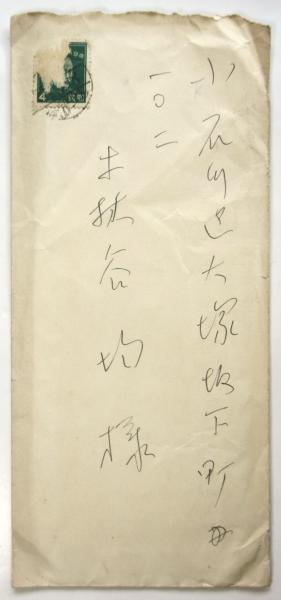 小石川区大塚坂下町
一〇二
土扶谷均様
4